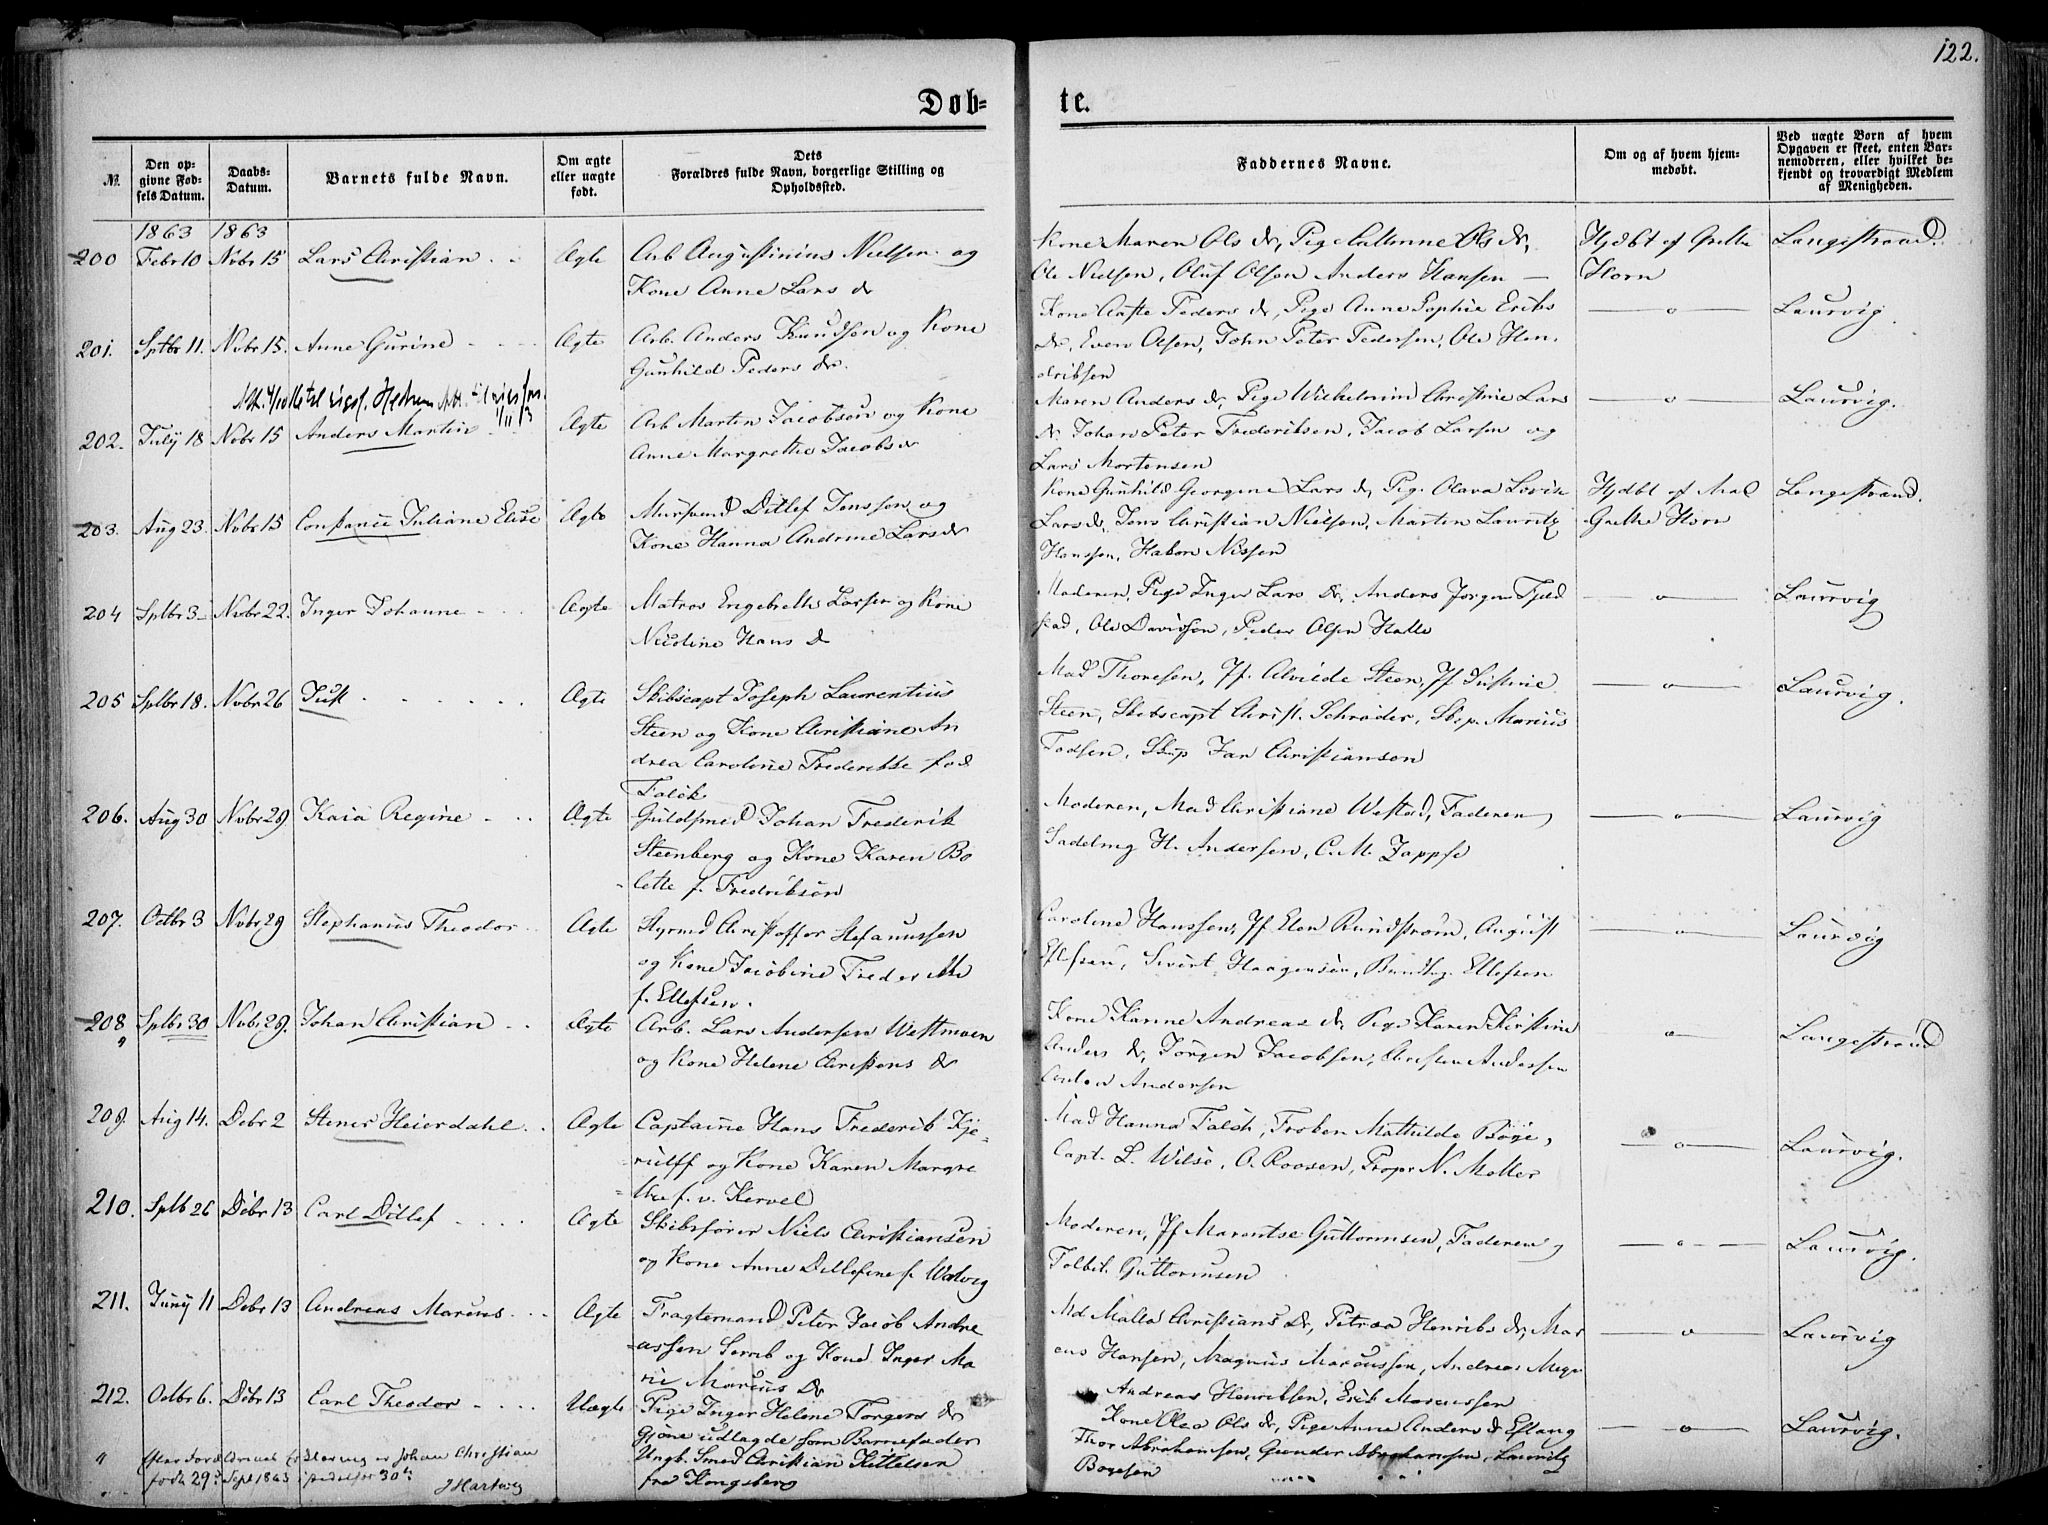 122.
Døb-
te.
№.
Den op-
givne Fød-
sels Datum.
Daabs-
Datum.
Barnets fulde Navn.
Om ægte
eller uægte
født.
Dets
Forældres fulde Navn, borgerlige Stilling og
Opholdssted.
Faddernes Navne.
Om og af hvem hjem-
medøbt.
Ved uægte Børn af hvem
Opgaven er skeet, enten Bar-
nemoderen, eller hvilket be-
kjendt og troværdigt Medlem
af Menigheden.
1863 1863
200 Febr 10 Nvbr 15 Lars Christian Ægte Arb Augustinius Nielsen og
Kone Anne Lars D
Kone Maren Ols D, Pige Ols D,
Ole Nielsen, Oluf Olsen Anders Hansen
Hjdbt af Grethe
Horn
Langestrand
201. Sptbr 11. Nvbr 15. Anne Gurine Ægte Arb. Anders Knudsen og Kone
Gunhild Peders D.
Kone Peders D, Pige Anne Sophie Eriks
D, Even Olsen, John Peter Pedersen, Ole Hen
driksen
Laurvig.
202. July 18 Nvbr 15 Anders Martin Ægte Arb Martin Jacobsen og Kone
Anne Margrethe Jacobs D
Maren Anders D, Pige Wilhelmine Christine Lars
D. Johan Peter Frederiksen, Jacob Larsen og
Lars Mortensen
Laurvig.
203. Aug 23. Nvbr 15 Constance Juliane Elise Ægte Muursvend Ditlef Jonssen og
Kone Hanna Andrine Lars D
Kone Gunhild Georgine Lars D, Pige Olava Lovise
Lars D, Jens Christian Nielsen, Martin Lauritz
Hanssen, Hakon Nissen
Hjdbt af Mad
Grethe Horn
Langestrand.
204 Sptbr 3 Nvbr 22. Inger Johanne Ægte Matros Engebreth Larsen og Kone
Nicoline Hans D
Moderen, Pige Inger Lars D, Anders Jørgen Fjeld
stad, Ole Davidsen, Peder Olsen Halle
Laurvig
205 Sptbr 18. Nvbr 26 Just Ægte Skibscapt Joseph Laurentius
Steen og Kone Christiane An
drea Caroline Frederikke fød
Falck
Mad Thoresen, Jf. Alvilde Steen, Jf
Steen, Skibscapt Christ. Schrøder, Skp. Marius
Todsen, Skip Jan Christiansen
Laurvig.
206. Aug 30 Nvbr 29. Kaia Regine Ægte Guldsmed Johan Frederik
Steenberg og Kone Karen Bo
lette f. Fredriksen
Moderen, Mad Christiane Wæstad, Faderen,
Sadelmg H. Andersen, C. M. Zappfe
Laurvig
207. Octbr 3 Nvbr 29 Stephanius Theodor Ægte Styrmd Christoffer Stefanussen
og Kone Jacobine Frederikke
f. Ellefsen.
Caroline Hanssen, Jf Elen Rundstrøm, August
Ellefsen, Sivert Haagensen, Ellefsen
Laurvig
208 Sptbr 30 Nvbr 29. Johan Christian Ægte Arb. Lars Andersen Westmoen
og Kone Helene Christens D
Kone Karine Andreas D, Pige Karen Kirstine
Anders D, Jørgen Jacobsen, Christen Andersen
Anton Andersen
Langestrand
209. Aug 14. Debr 2 Stener Heierdahl Ægte Captaine Hans Frederik Kje-
rulff og Kone Karen Margre
the f. v. Kervel
Mad Hanna Falch, Frøken Mathilde Bøye,
Capt. L. Wilse, O. Roosen, Propr N. Møller
Laurvig.
210. Sptb 26 Debr 13 Carl Ditlef Ægte Skibsfører Niels Christiansen
og Kone Anne Ditlefine f. Walvig
Moderen, Jf Marentse Guttormsen, Faderen,
Tolbbt. Guttormsen
Laurvig.
211. Juny 11 Debr 13 Andreas Marcus Ægte Fragtemand Peter Jacob Andre
assen og Kone Inger Ma
rie Marcus D
Md Malla Christians D, Petrea Henriks D, Mar
cus Hansen, Magnus Marcussen, Andreas
Andreas Henriksen, Erik Marcussen
Laurvig
212. Octbr 6. Debr 13 Carl Theodor Uægte Pige Inger Helene Torgers D
Gjone udlagde som Barnefader
Ungk. Smed Christian Kittelsen
fra Kongsberg
Kone Olea Ols D, Pige Anne Anders D Eftang
Thor Abrahamsen, Gunder Abrahamsen, Lauritz
Bogesen
Laurvig.
" Efter Forældrenes er Johan Christian
født 29. Sept 1863 istedetfor 30te
J Hartwig